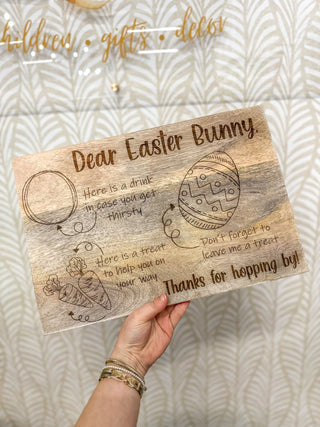 children • gifts • decor
Dear Easter Bunny,
Here is a drink
in case you get
thirsty
Here is a treat
to help you on
your way
Don't forget to
leave me a treat
Thanks for hopping by!